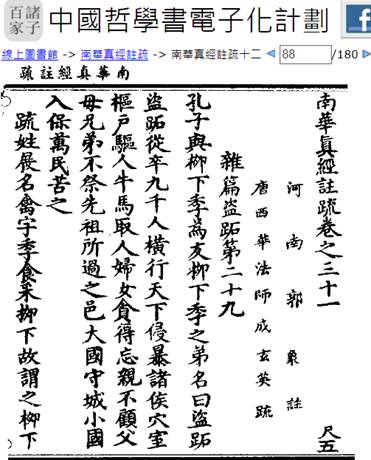 諸子百家
中國哲學書電子化計劃
線上圖書館 -> 南華真經註疏 -> 南華真經註疏十二
88
/180
南華真經註疏
南華真經註疏卷之三十一
河南郭象註
唐西華法師成玄英疏
雜篇盜跖第二十九
孔子與柳下季為友柳下季之弟名曰盜跖
盜跖從卒九千人橫行天下侵暴諸侯穴室
樞戶驅人牛馬取人婦女貪得忘親不顧父
母兄弟不祭先祖所過之邑大國守城小國
入保萬民苦之
疏姓展名禽字季食采柳下故謂之柳下
尺五